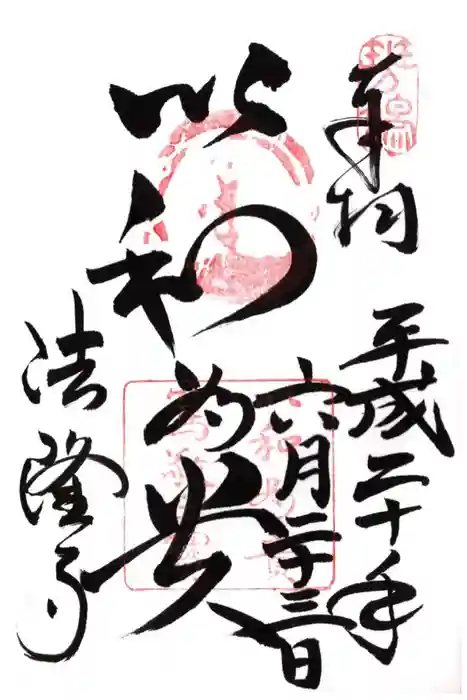 奉拝
平成二十年
六月二十三日
以和
為貴
法隆寺